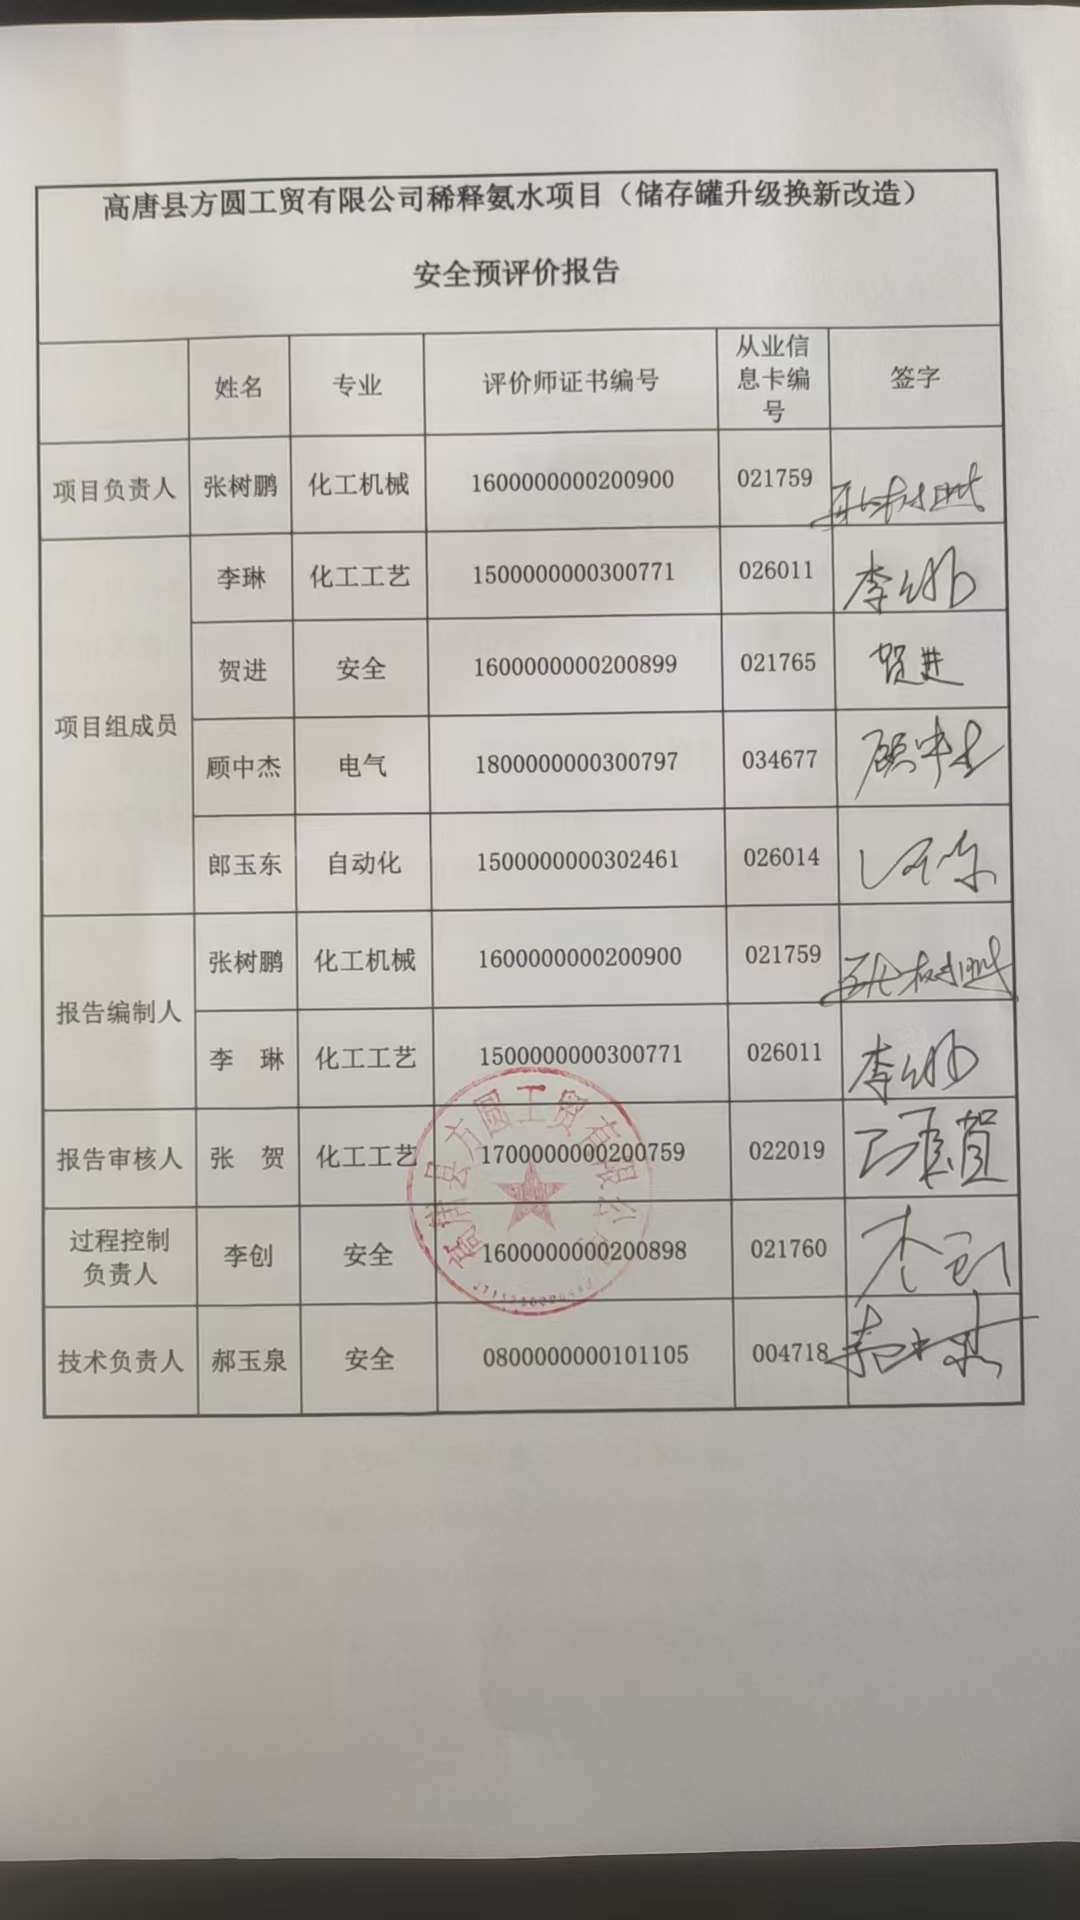 高唐县方圆工贸有限公司稀释氨水项目（储存罐升级换新改造）
安全预评价报告
姓名 专业 评价师证书编号 从业信息卡编号 签字
项目负责人 张树鹏 化工机械 1600000000200900 021759 张树鹏
项目组成员 李琳 化工工艺 1500000000300771 026011 李琳
贺进 安全 1600000000200899 021765 贺进
顾中杰 电气 1800000000300797 034677 顾中杰
郎玉东 自动化 1500000000302461 026014
报告编制人 张树鹏 化工机械 1600000000200900 021759 张树鹏
李 琳 化工工艺 1500000000300771 026011 李琳
报告审核人 张 贺 化工工艺 1700000000200759 022019 张賀
过程控制负责人 李创 安全 1600000000200898 021760 李创
技术负责人 郝玉泉 安全 0800000000101105 004718
高唐县方圆工贸有限公